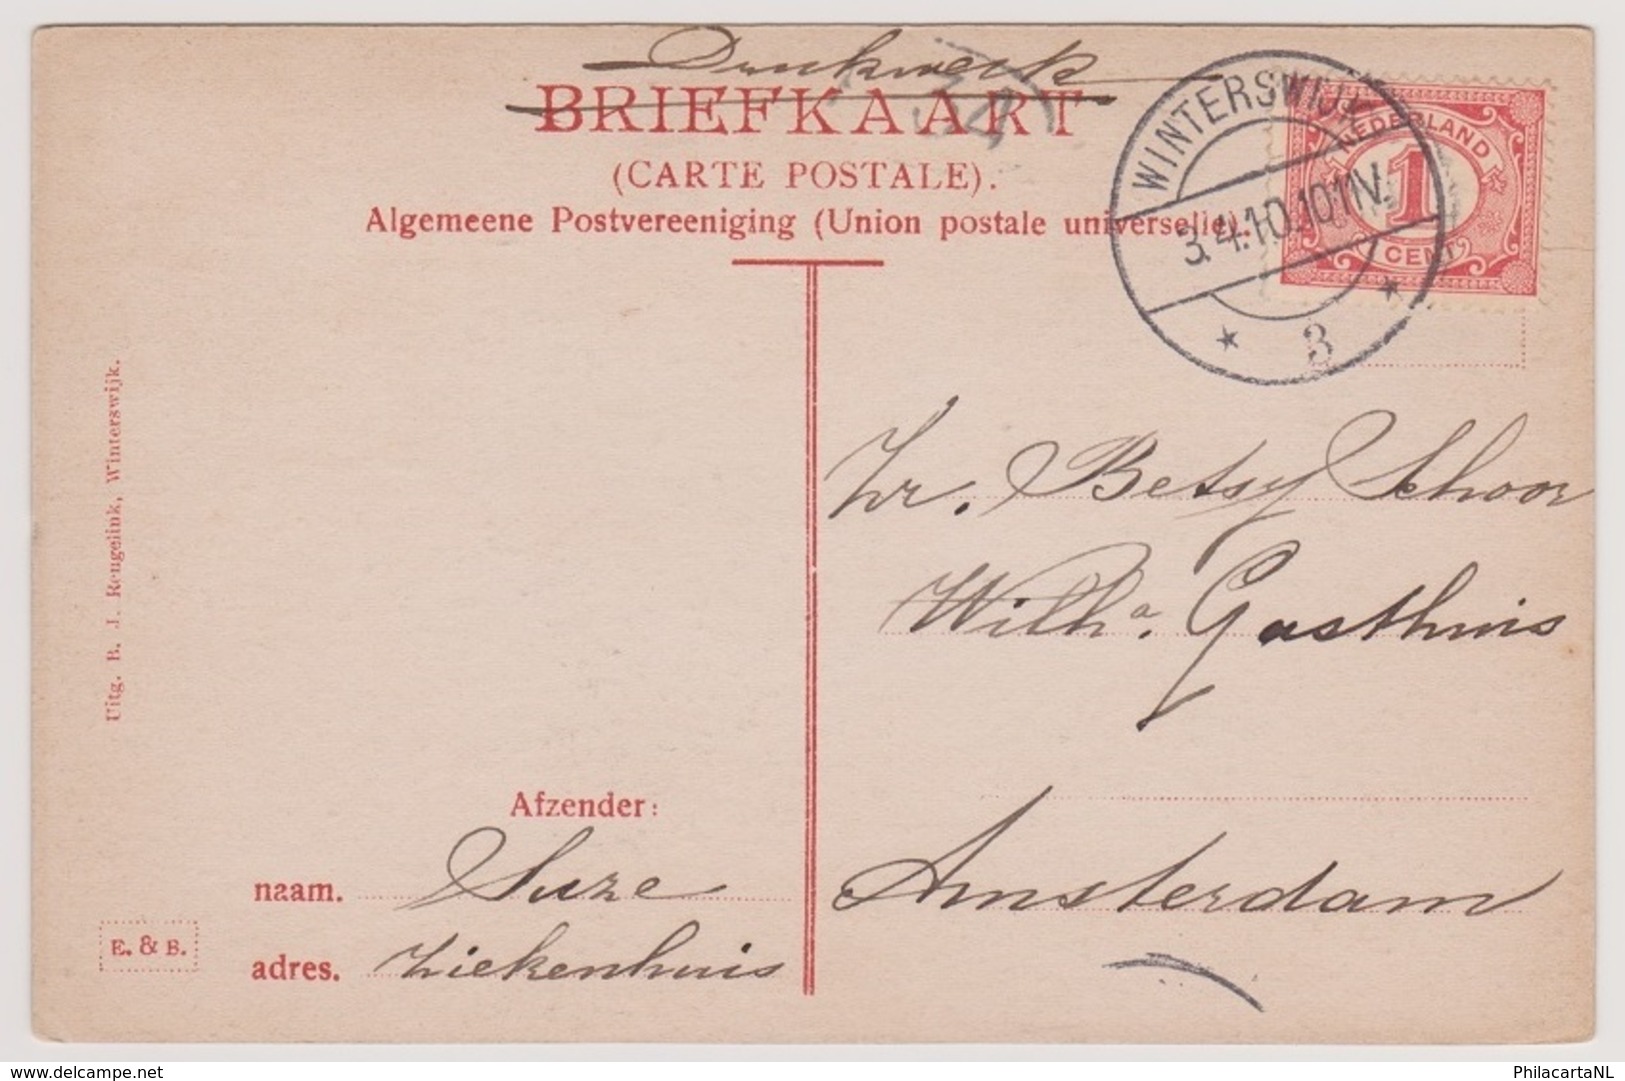 Drukwerk
BRIEFKAART
(CARTE POSTALE).
Algemeene Postvereeniging (Union postale universelle).
WINTERSWIJK
3.4.10.10-11V.
3
NEDERLAND
1
1 CENT
Zr. Betsy Schoor
Wilh.a Gasthuis
Amsterdam
Afzender:
naam. Suze
adres. Ziekenhuis
E. & B.
Uitg. B. J. Rengelink, Winterswijk.
www.delcampe.net
PhilacartaNL